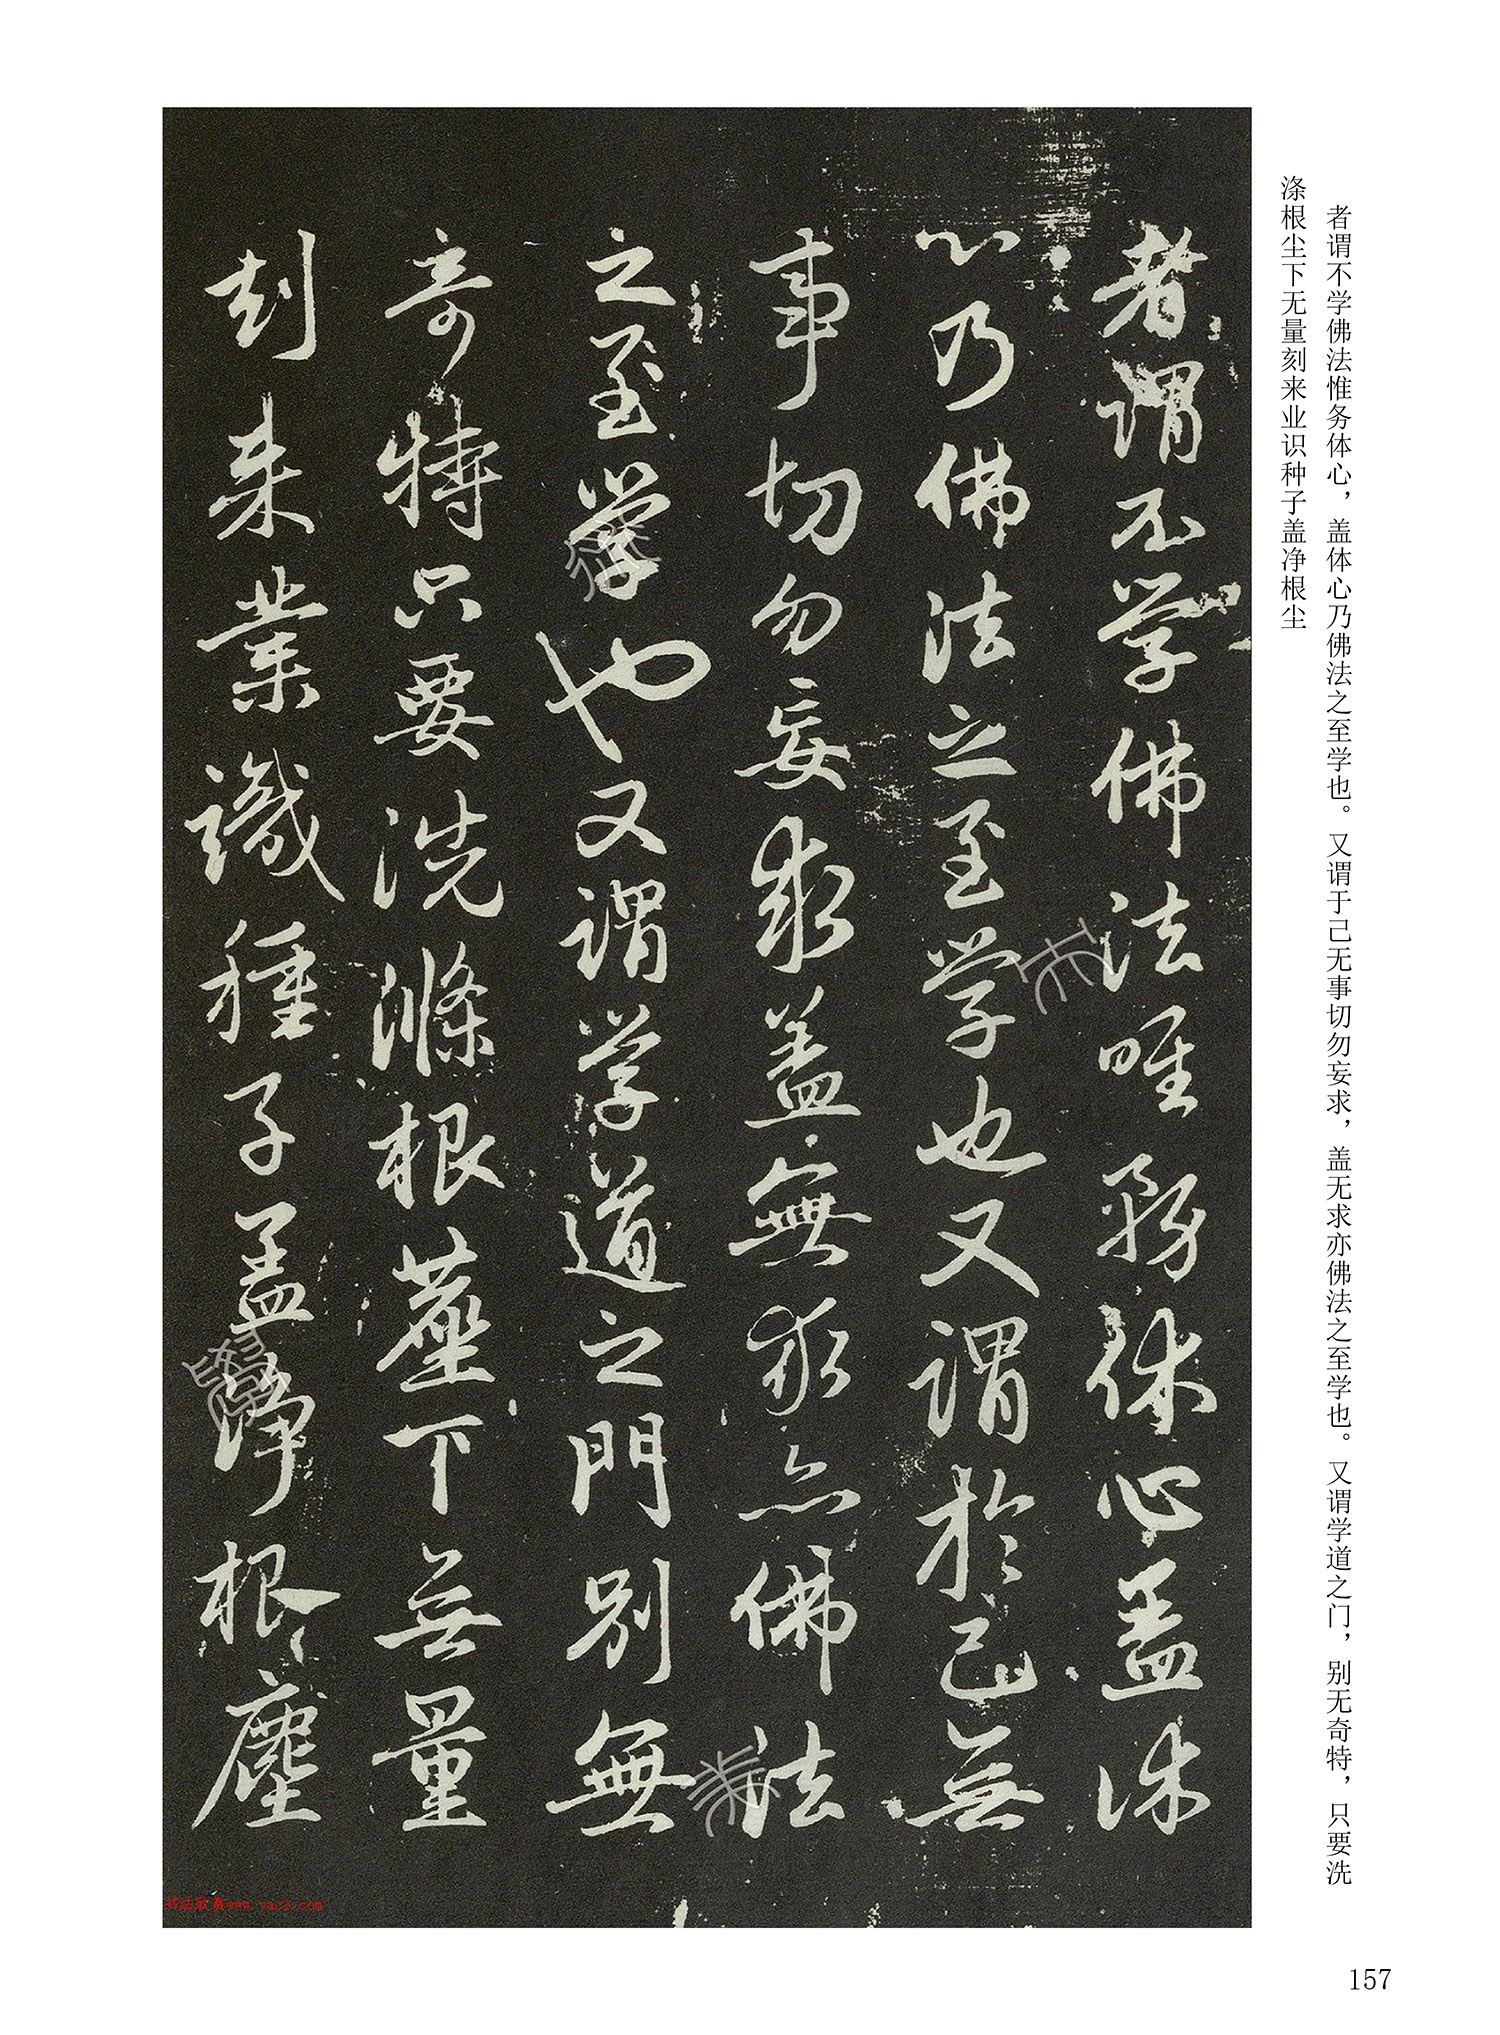 者谓不学佛法惟务体心，盖体心乃佛法之至学也。又谓于己无事切勿妄求，盖无求亦佛法之至学也。又谓学道之门，别无奇特，只要洗
涤根尘下无量刻来业识种子盖净根尘
者謂不学佛法唯務休心盖休
心乃佛法之至学也又謂於己無
事切勿妄求盖無求亦佛法
之至学也又謂学道之門別無
奇特只要洗滌根塵下無量
刻来業識種子盖净根塵
书法欣赏www.yac8.com
157